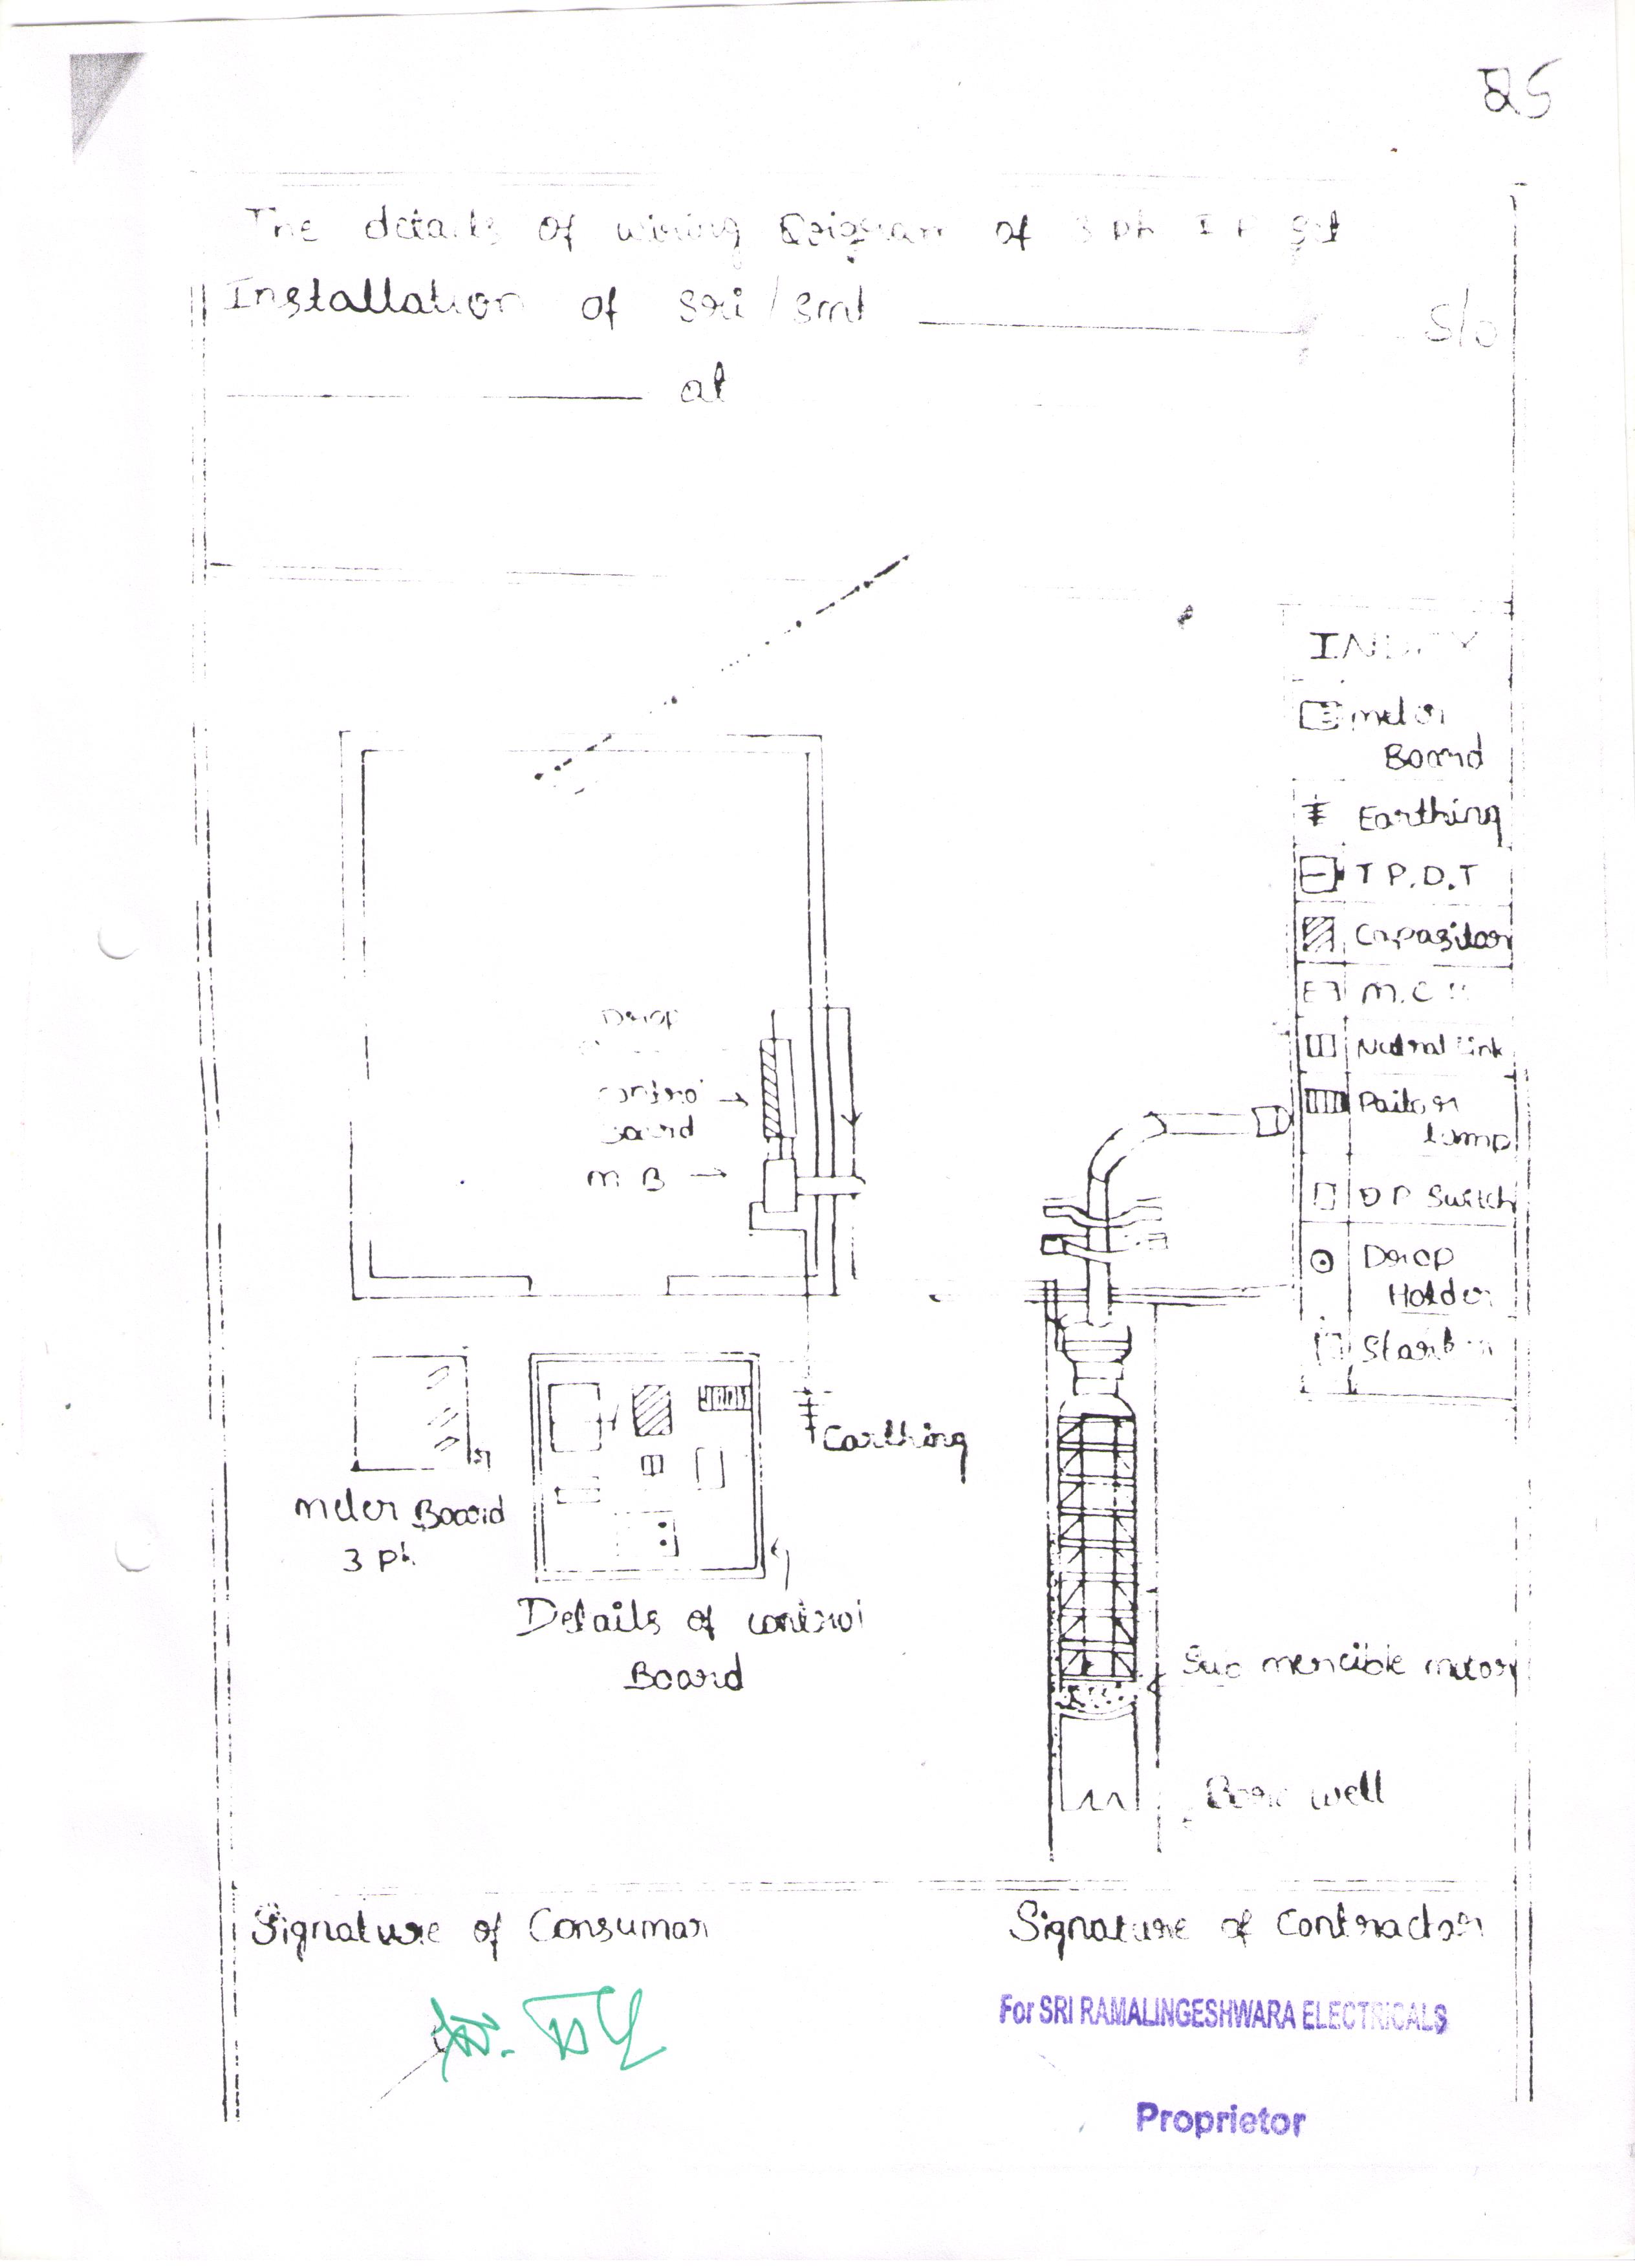 25
The details of wiring Daigram of 3 ph I P Set
Installation of Sri / Smt S/o
at
INDEX
meter
Board
Earthing
T P.D.T
Capasitor
M.C
Nutral Link
Pailor
Lamp
D P Switch
Drop
Holder
Starter
Drop
Control
Board
M B
Earthing
meter Board
3 ph.
Details of control
Board
Sub mercible motor
Bore well
Signature of Consumar
Signature of Contractor
For SRI RAMALINGESHWARA ELECTRICALS
Proprietor